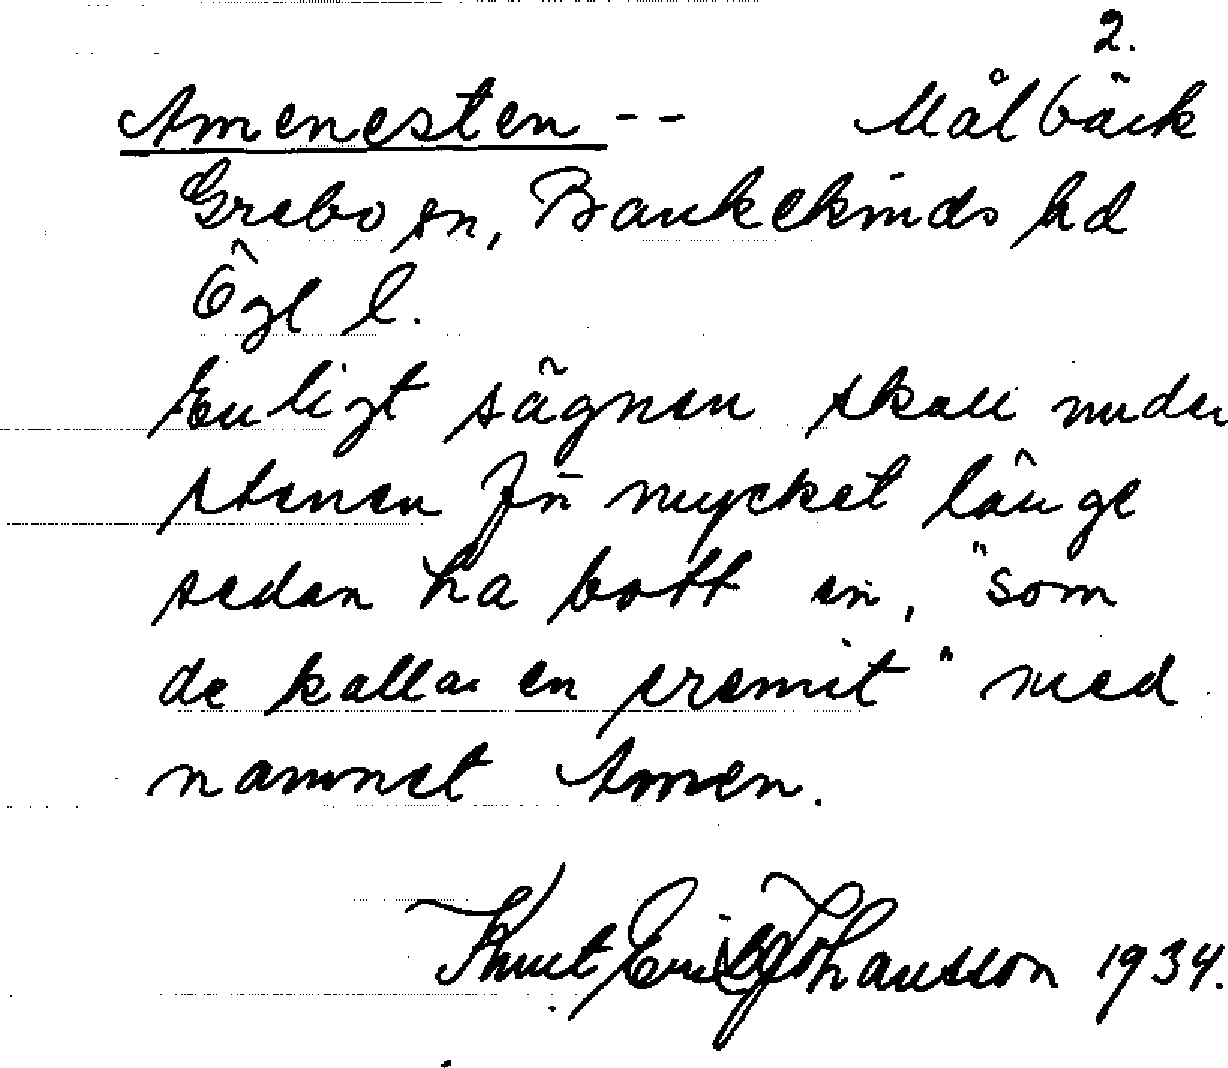 2.
Amenesten -- Målbäck
Grebo sn, Bankekinds hd
Ögl l.
Enligt sägnen skall under
stenen för mycket länge
sedan ha bott en, "som
de kalla en eremit" med
namnet Amen.
Knut Erik Johansson 1934.